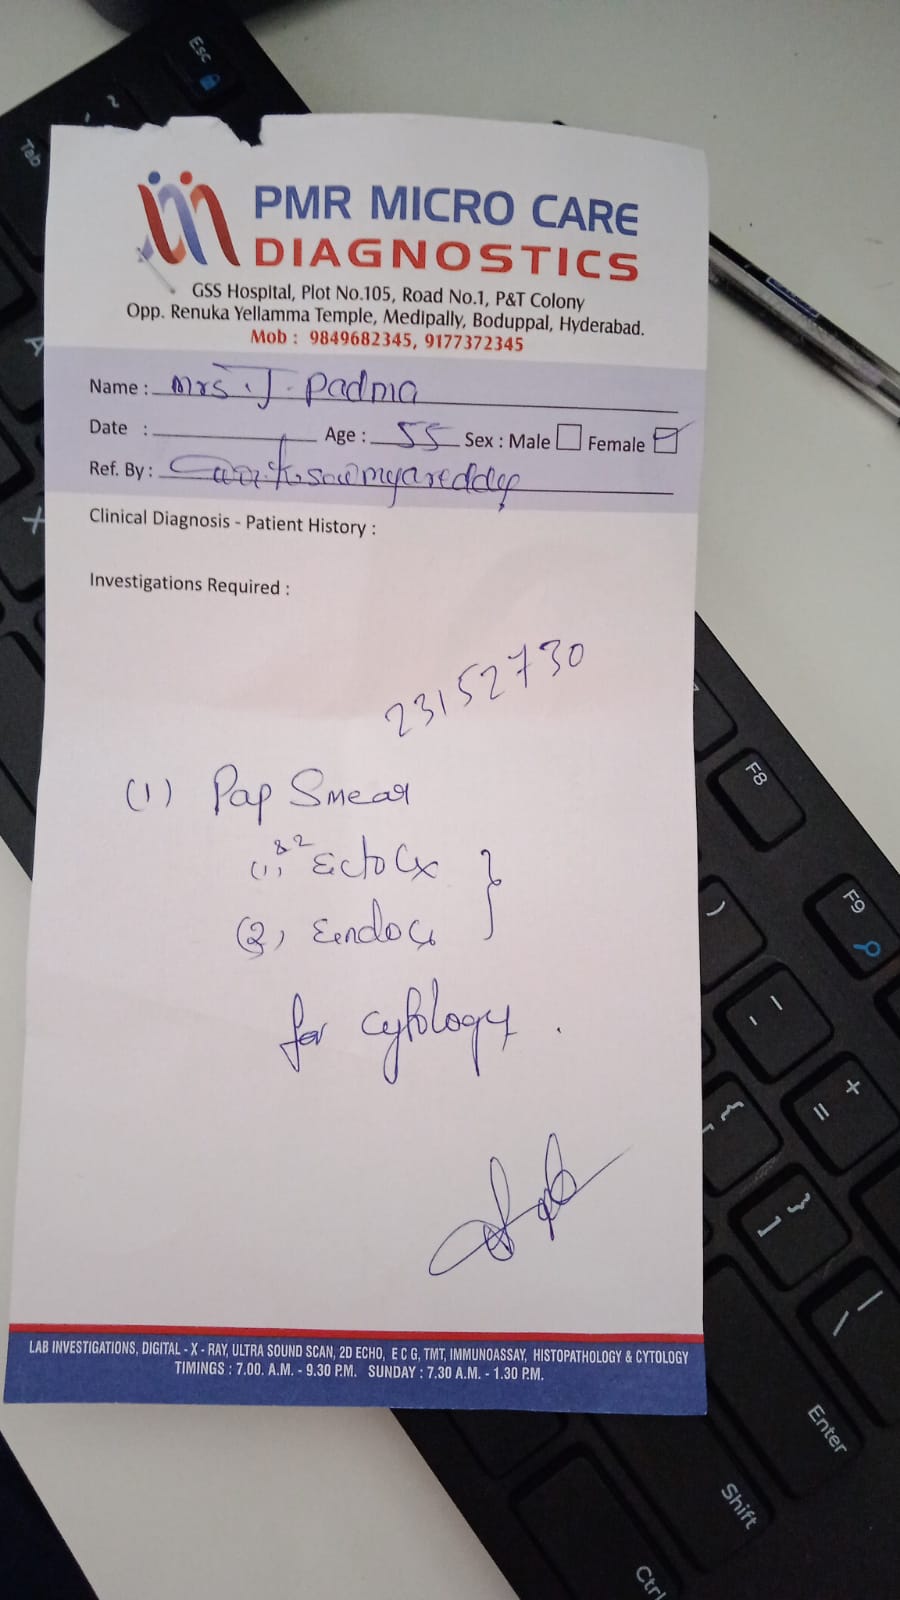 PMR MICRO CARE
DIAGNOSTICS
GSS Hospital, Plot No.105, Road No.1, P&T Colony
Opp. Renuka Yellamma Temple, Medipally, Boduppal, Hyderabad.
Mob : 9849682345, 9177372345
Name : Mrs. J. Padma
Date : Age : 55 Sex : Male Female
Ref. By : sowmyareddy
Clinical Diagnosis - Patient History :
Investigations Required :
23152730
(1) Pap Smear
& 2
(1) Ecto Cx
(2) Endo Cx
for cytology.
LAB INVESTIGATIONS, DIGITAL - X - RAY, ULTRA SOUND SCAN, 2D ECHO, E C G, TMT, IMMUNOASSAY, HISTOPATHOLOGY & CYTOLOGY
TIMINGS : 7.00. A.M. - 9.30 P.M. SUNDAY : 7.30 A.M. - 1.30 P.M.
Esc
~
Tab
A
X
F8
F9
)
_
-
+
=
{
[
}
]
|
\
Enter
Shift
Ctrl